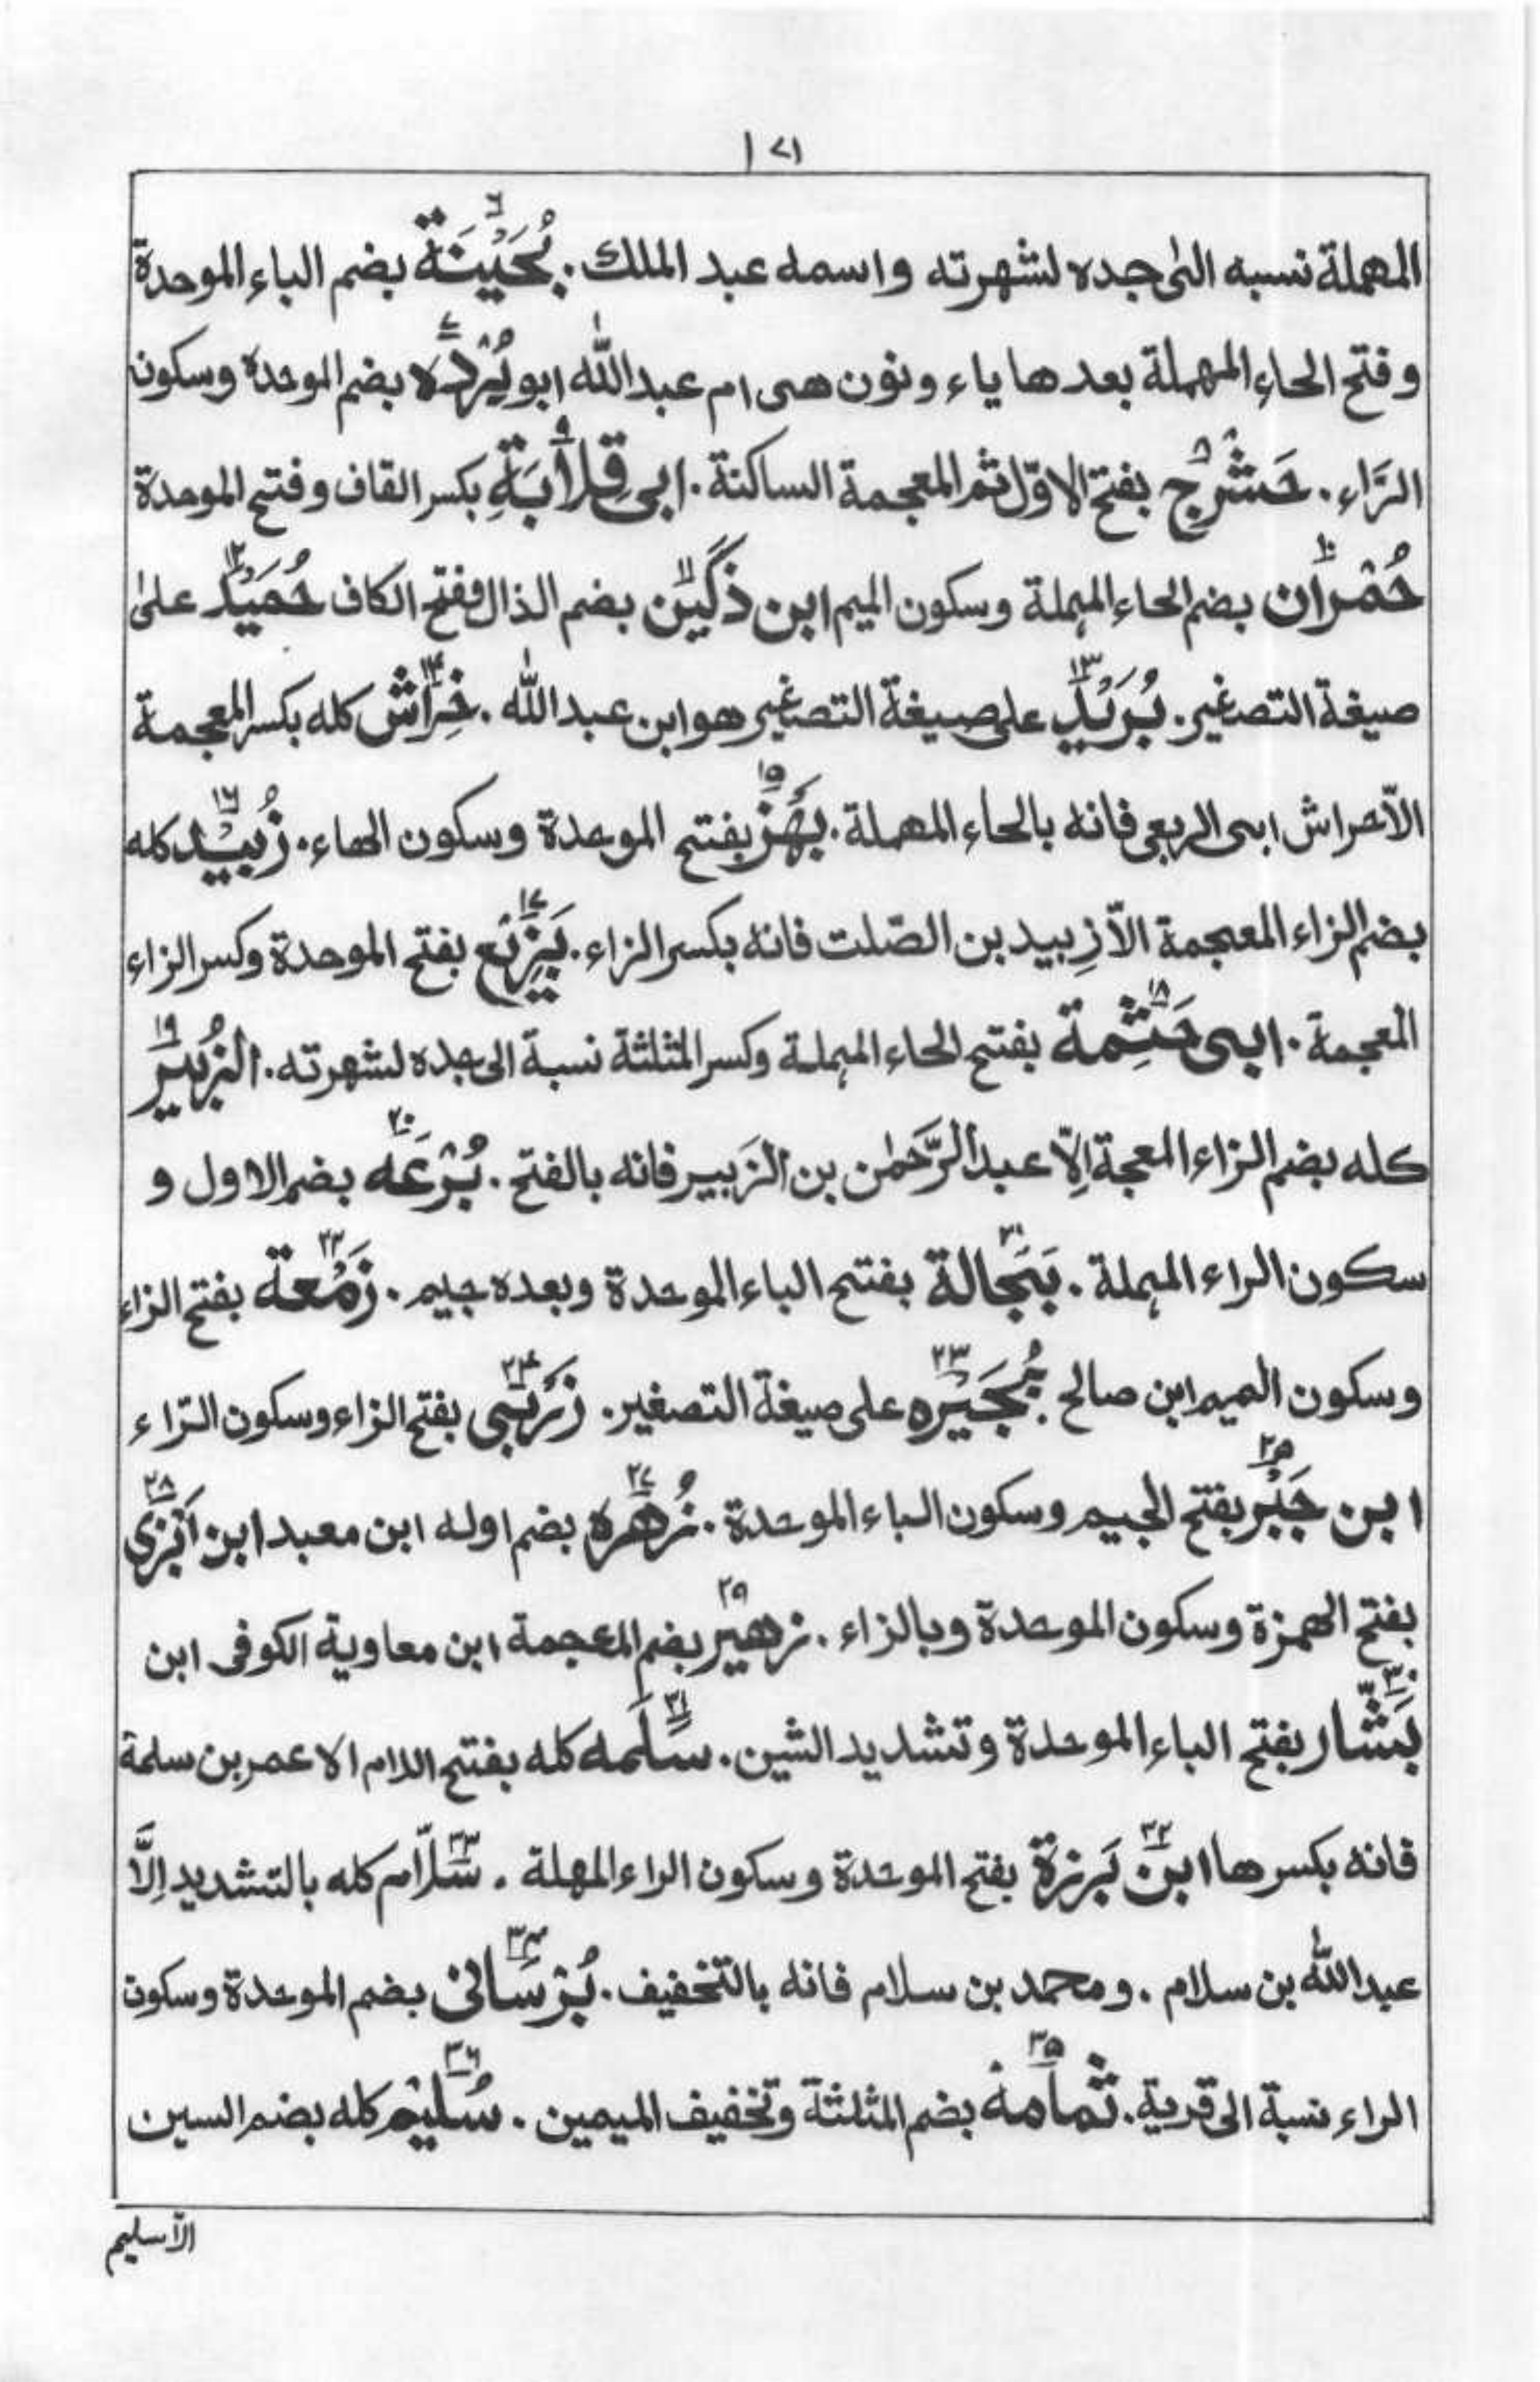 ١٧١
المهملة نسبه الى جده لشهرته واسمه عبد الملك . بُحَيْنَة ٦ بضم الباء الموحدة
وفتح الحاء المهملة بعدها ياء ونون هى ام عبدالله ابو بُرْدَه ٧ بضم الموحدة وسكون
الرَّاء . حَشْرَج ٨ بفتح الاوّل ثم المعجمة الساكنة . ابى قِلَابَةِ ٩ بكسر القاف وفتح الموحدة
حُمْران ١٠ بضم الحاء المهملة وسكون الميم ابن ذكَيَن ١١ بضم الذال وفتح الكاف حُمَيْد ١٢ على
صيغة التصغير . بُرَيْد ١٣ على صيغة التصغير هو ابن عبدالله . خِرَاش ١٤ كله بكسر المعجمة
الاّ حراش ابى الربعى فانه بالحاء المهملة . بَهْز ١٥ بفتح الموحدة وسكون الهاء . زُبَيْد ١٦ كله
بضم الزاء المعجمة الاّ زِبيد بن الصّلت فانه بكسر الزاء . بَزِيْع ١٧ بفتح الموحدة وكسر الزاء
المعجمة . ابى حَثِمة ١٨ بفتح الحاء المهملة وكسر المثلثة نسبة الى جده لشهرته . الزُبَير ١٩
كله بضم الزاء المعجة اِلاّ عبد الرَّحمٰن بن الزَبير فانه بالفتح . بُرْعَه ٢٠ بضم الاول و
سكون الراء المهملة . بَجَالة ٢١ بفتح الباء الموحدة وبعده جيم . زَمْعة ٢٢ بفتح الزاء
وسكون الميم ابن صالح بُجَيْره ٢٣ على صيغة التصغير . زَرْبى ٢٤ بفتح الزاء وسكون الرّاء
ابن جَبْر ٢٥ بفتح الجيم وسكون الباء الموحدة . زُهره ٢٧ بضم اوله ابن معبد ابن اَبْزى ٢٨
بفتح الهمزة وسكون الموحدة وبالزاء . زهير ٢٩ بضم المعجمة ابن معاوية الكوفى ابن
بَشّار ٣٠ بفتح الباء الموحدة وتشديد الشين . سَلَمه ٣١ كله بفتح اللام الا عمر بن سلمة
فانه بكسرها ابن بَرزة ٣٢ بفتح الموحدة وسكون الراء المهلة . سَلاّم ٣٣ كله بالتشديد اِلَّا
عبدالله بن سلام . ومحمد بن سلام فانه بالتخفيف . بُرْسَانى ٣٤ بضم الموحدة وسكون
الراء نسبة الى قرية . ثمامة ٣٥ بضم المثلثة وتخفيف الميمين . سُلَيْم ٣٦ كله بضم السين
الاّ سليم